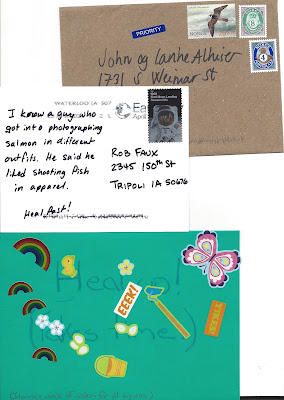 PRIORITY
8
4
John og Lanhe Alhiser
1731 S Weimar St
WATERLOO IA 507
I know a guy who
got into photographing
salmon in different
outfits. He said he
liked shooting fish
in apparel.
Heal fast!
ROB FAUX
2345 150th ST
TRIPOLI IA 50676
Healin !
EEEK!
(takes time)